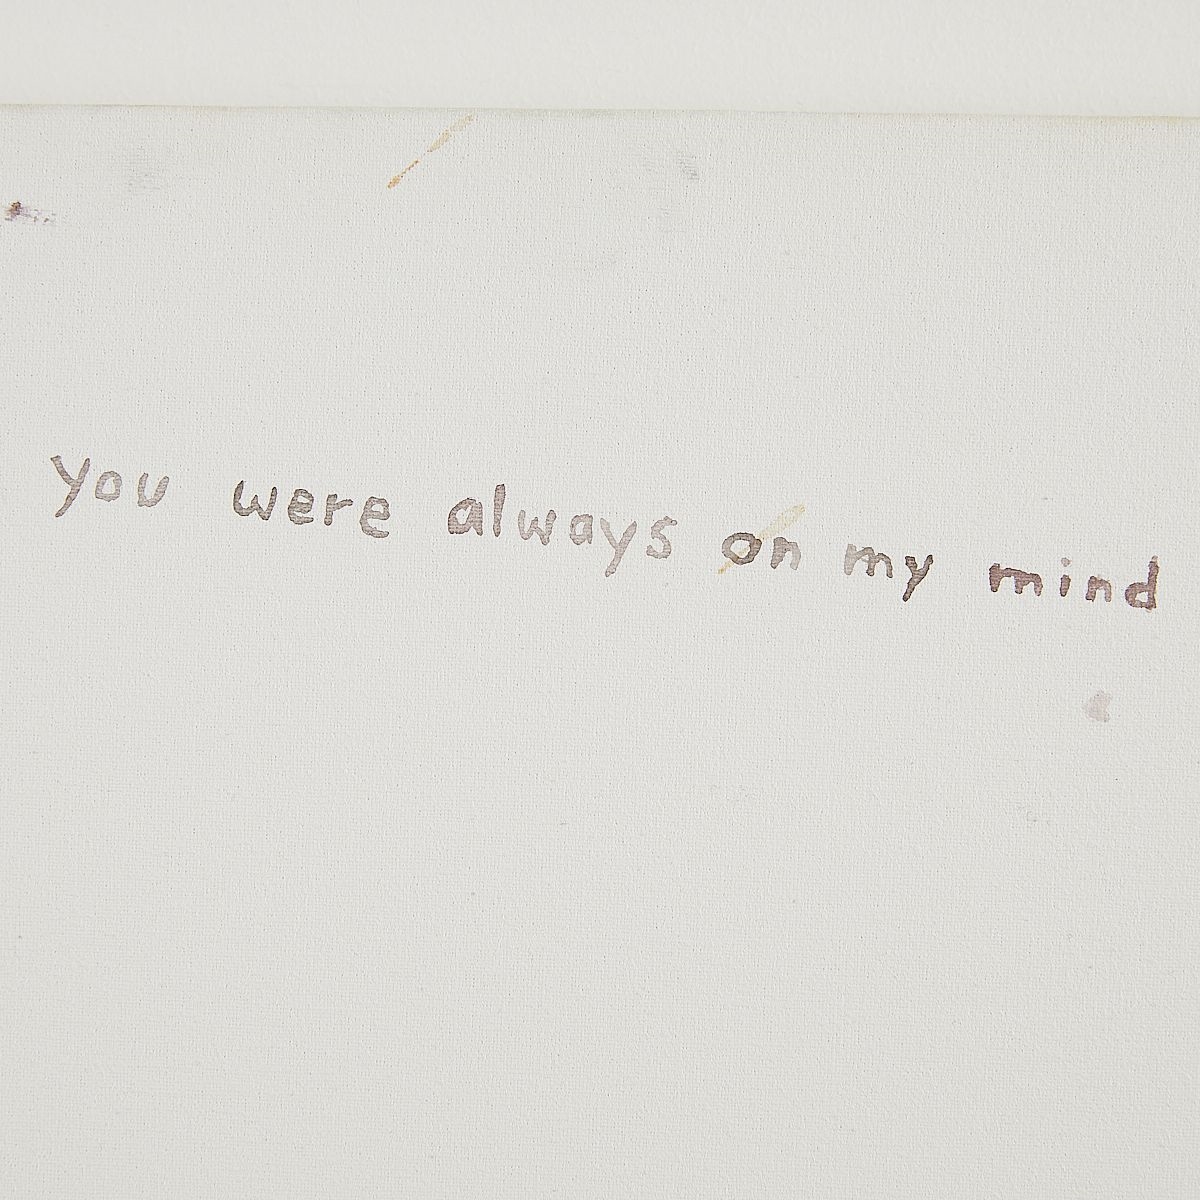 you were always on my mind